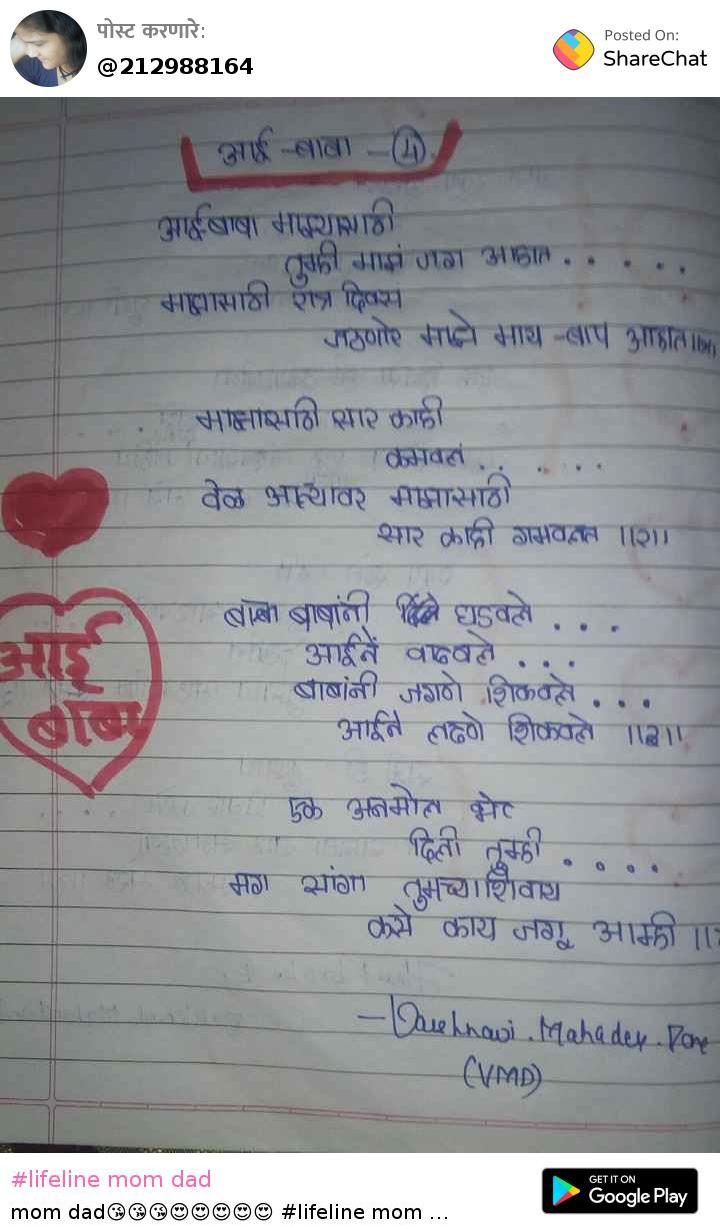 पोस्ट करणारे:
@212988164
Posted On:
ShareChat
आई -बाबा -(4).
आईबाबा माझ्यासाठी
तुम्ही माझं जग आहात . . . . . .
माझासाठी रात्र दिवस
माझे माय -बाप आहात
माझासाठी सार काही
कमवल . . . . . .
वेळ आल्यावर माझासाठी
सार काही गमवलत ।।२।।
बाबांनी घडवले . . .
आईने वाढवले . . .
बाबांनी जगणे शिकवले . . .
आईने लढणे शिकवले
आई
बाबा
एक अनमोल भेट
दिली तुम्ही . . . .
मग सांगा तुमच्याशिवाय
कसे काय जगू आम्ही
- Vaishnavi . Mahadev .
(VMD)
#lifeline mom dad
mom dad😘😘😘😍😍😍😍😍 #lifeline mom ...
GET IT ON
Google Play